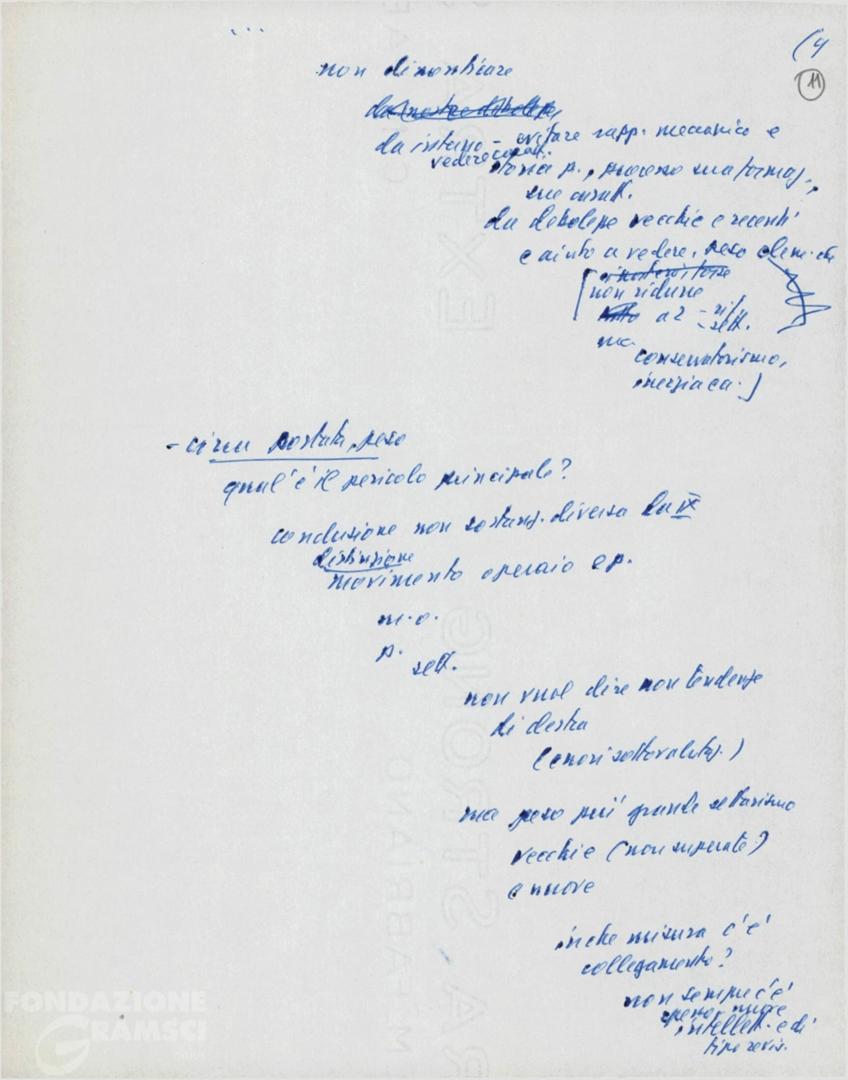 (4
11
non dimenticare
da interno - evitare rapp. meccanico e
vedere
storia p., processo sua formaz.,
sue caratt.
da debolezze vecchie e recenti
e aiuto a vedere, peso elem. di
non ridurre
a 2 - rif.
- sett.
ma
conservatorismo,
inerzia ca. ]
- circa portata, peso
qual'è il pericolo principale?
conclusione non sostanz. diversa da IX
distinzione
movimento operaio e p.
m.o.
p.
sett.
non vuol dire non tendenze
di destra
(errori sottovalutaz.)
ma peso più grande settarismo
vecchie (non superate)
e nuove
in che misura c'è
collegamento?
non sempre c'è
spesso nuove
intellett. e di
tipo revis.
FONDAZIONE
GRAMSCI
EXTRA STRONG
FABRIANO